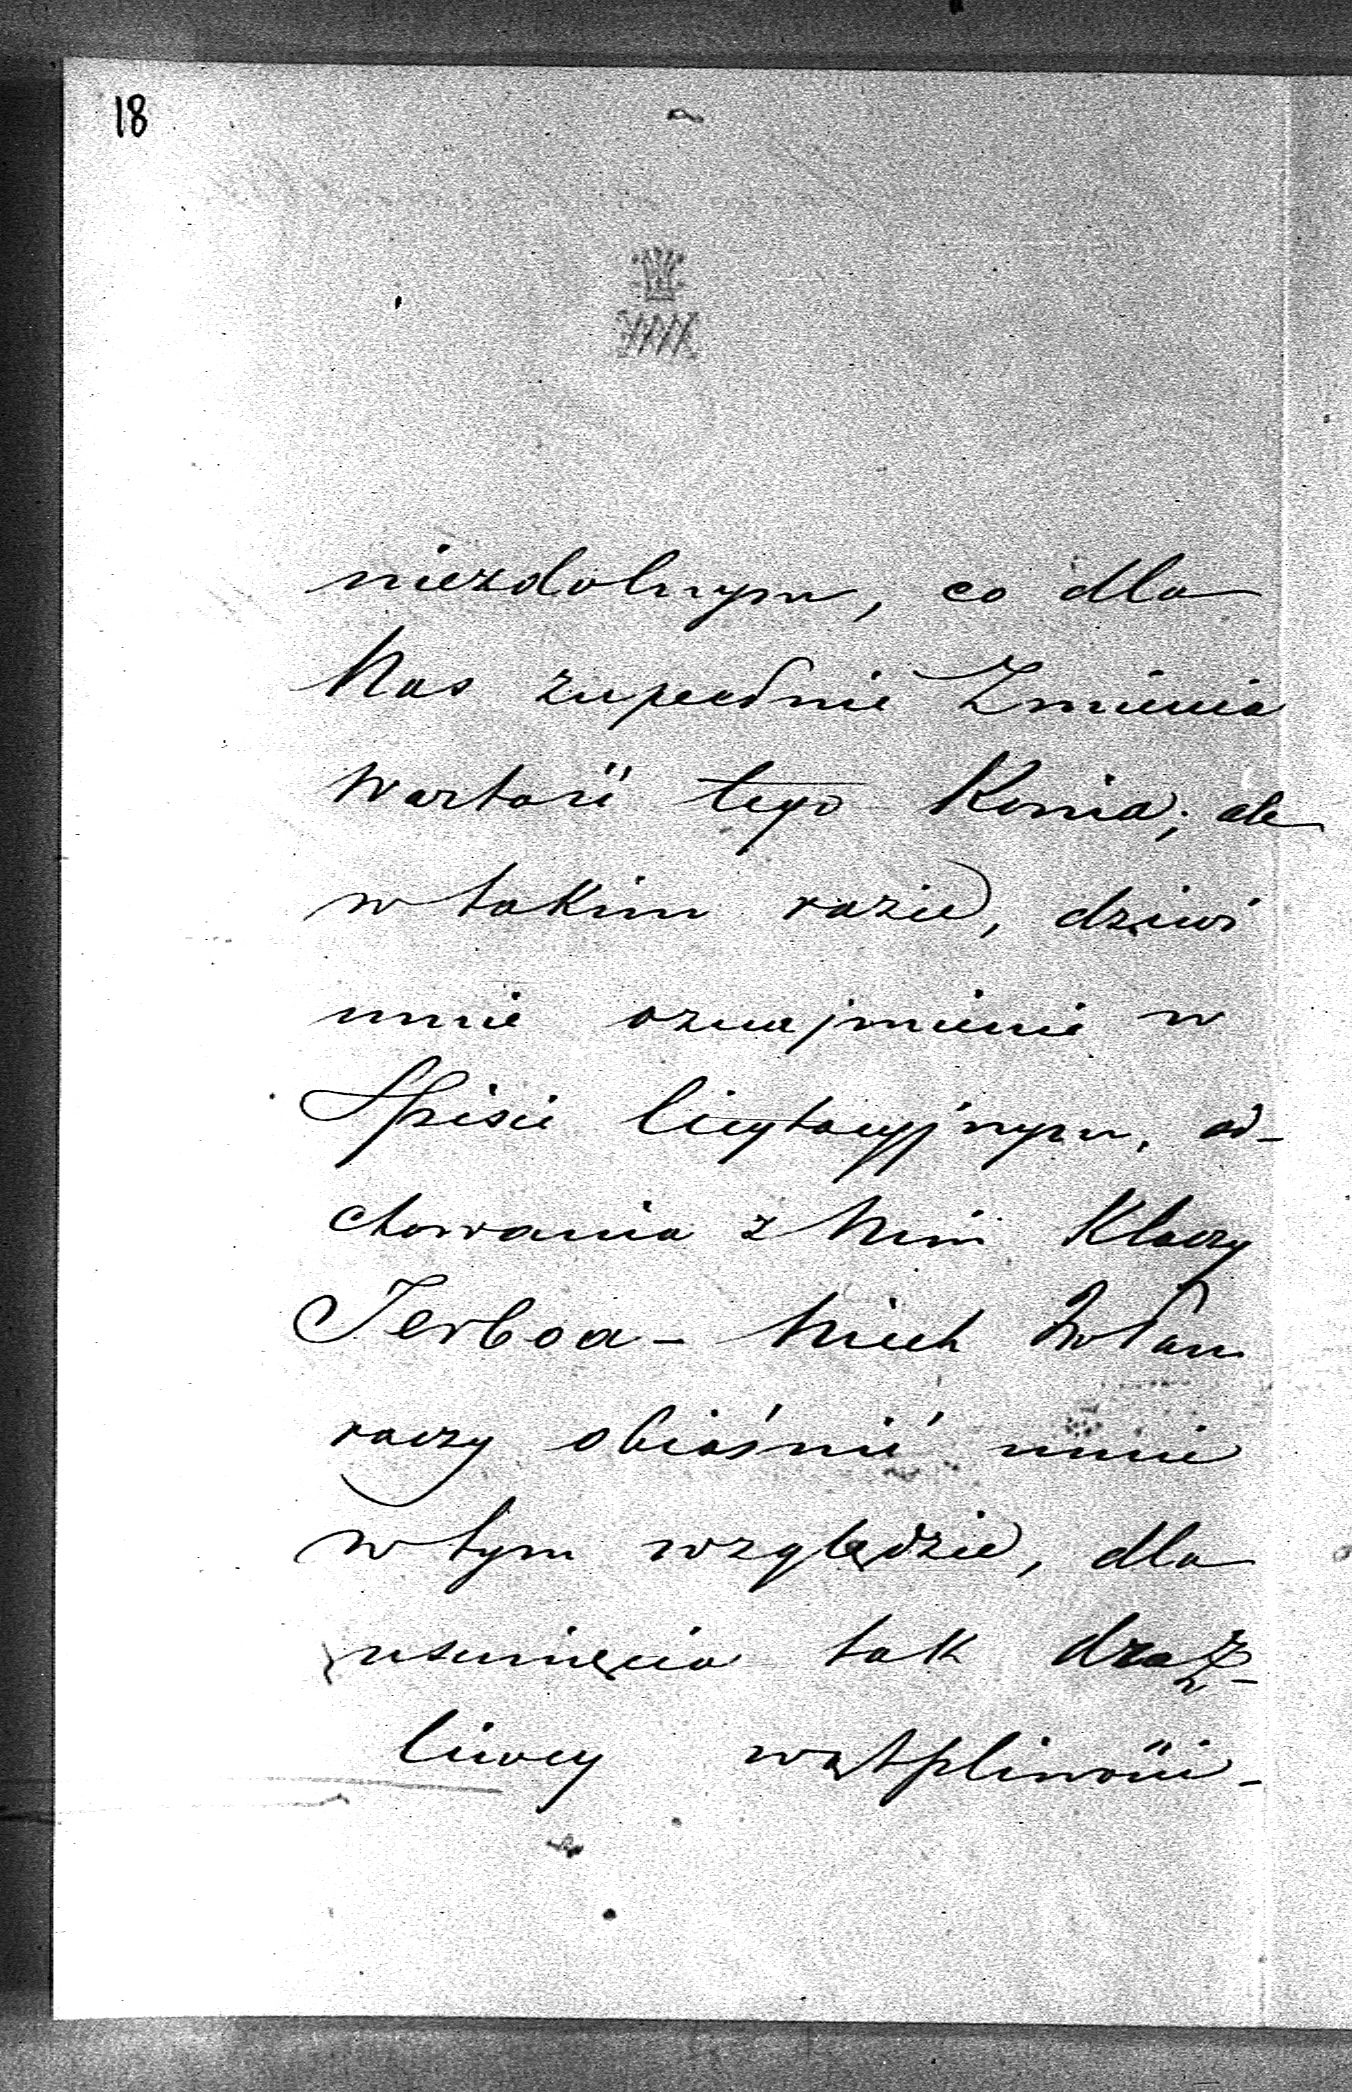 18
niezdolnym, co dla
Nas zupełnie Zmienia
Wartość tego Konia; ale
w takim razie, dziwi
mnie oznajmienie w
Spisie licytacyjnym, od-
chowania z Nim Klaczy
Jerboa - Niech Pan
raczy obiaśnić mnie
w tym względzie, dla
usunięcia tak draż-
liwey wątpliwości -